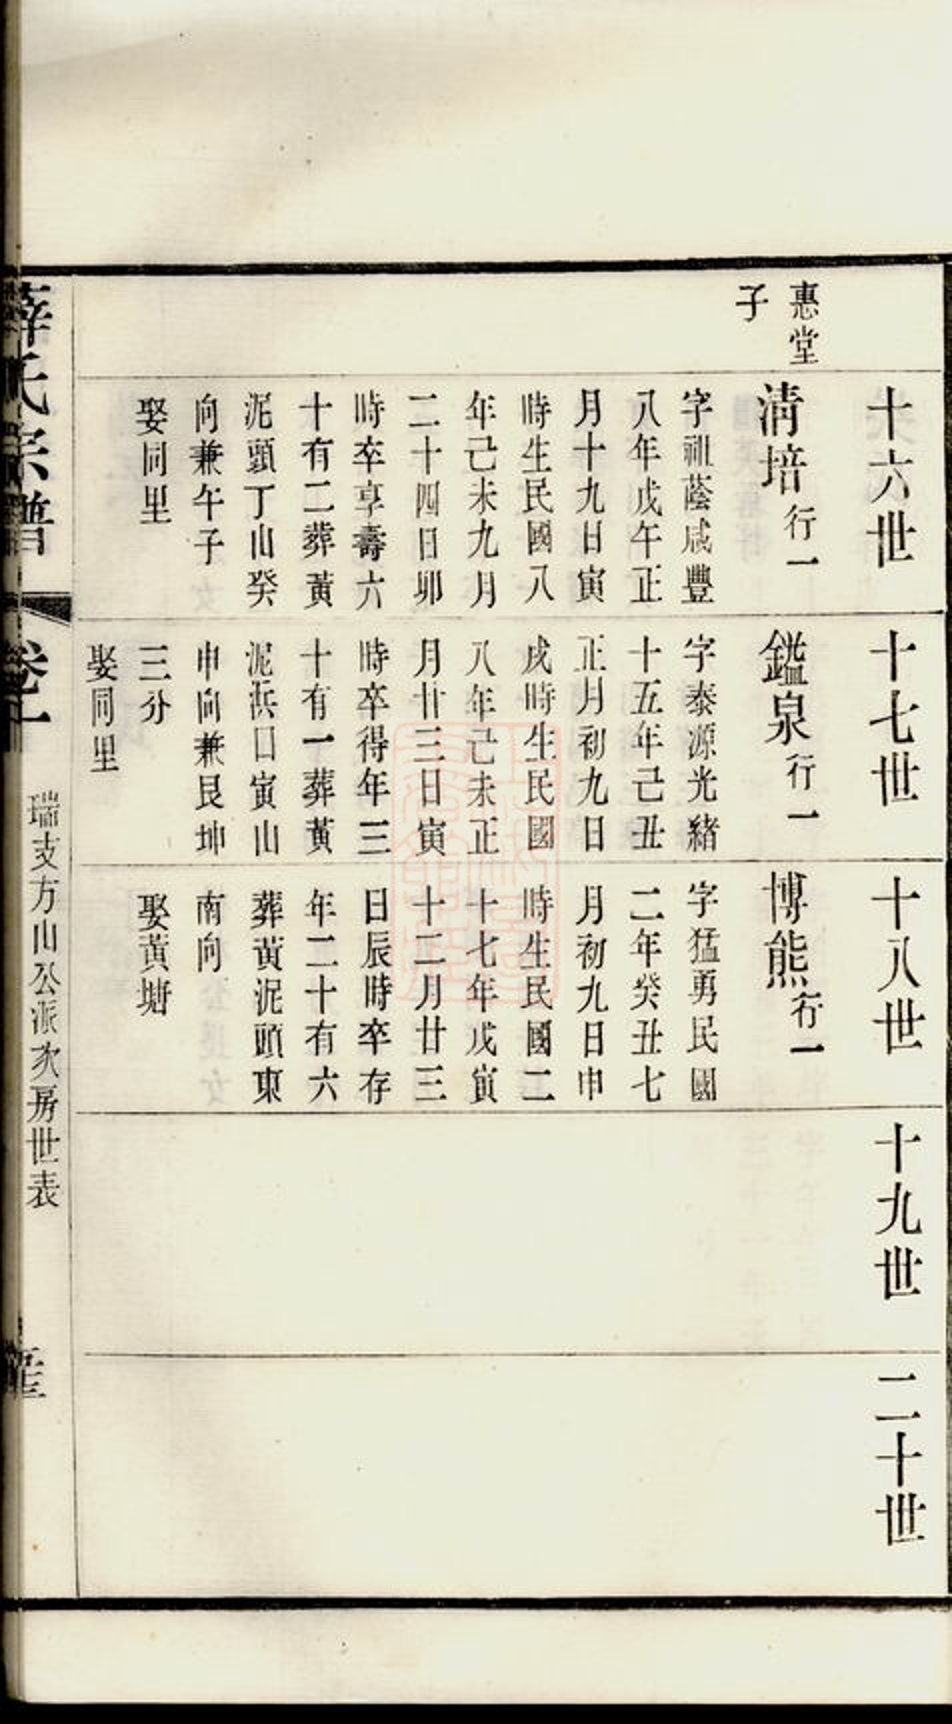 十六世
十七世
十八世
十九世
二十世
惠堂
子
清培行一
字祖蔭咸豐
八年戊午正
月十九日寅
時生民國八
年己未九月
二十四日卯
時卒享壽六
十有二葬黃
泥頭丁山癸
向兼午子
娶同里
鑑泉行一
字泰源光緒
十五年己丑
正月初九日
戌時生民國
八年己未正
月廿三日寅
時卒得年三
十有一葬黃
泥浜口寅山
申向兼艮坤
三分
娶同里
博熊行一
字猛勇民國
二年癸丑七
月初九日申
時生民國二
十七年戊寅
十二月廿三
日辰時卒存
年二十有六
葬黃泥頭東
南向
娶黃塘
薛氏宗譜
卷一
瑞支方山公派次房世表